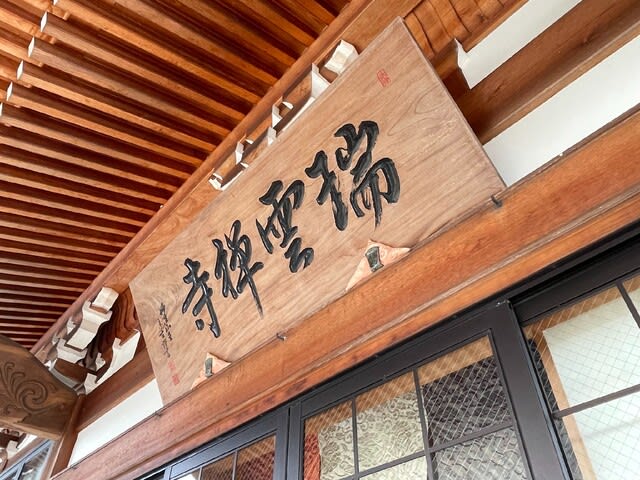 瑞雲禅寺